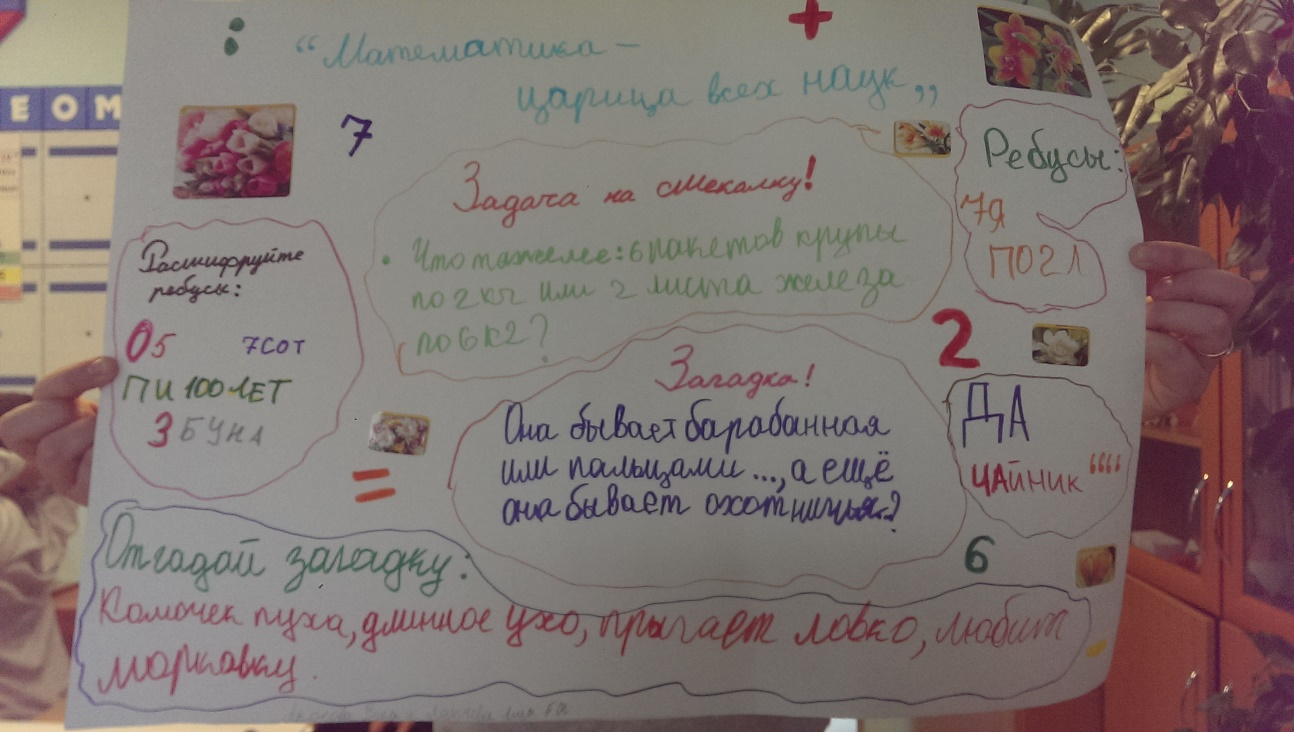 ЕОМ
“Математика –
царица всех наук„
:
+
7
Задача на смекалку!
• Что тяжелее: 6 пакетов крупы
по 2 кг или 2 листа железа
по 6 кг?
Ребусы:
7Я
ПО2Л
Расшифруйте
ребусы:
О5 7СОТ
ПИ100ЛЕТ
3БУНА
2
=
Загадка!
Она бывает барабанная
или пальцами ..., а ещё
она бывает охотничья..?
ДА
ЧАЙНИК““
6
-
Отгадай загадку:
Комочек пуха, длинное ухо, прыгает ловко, любит
морковку.